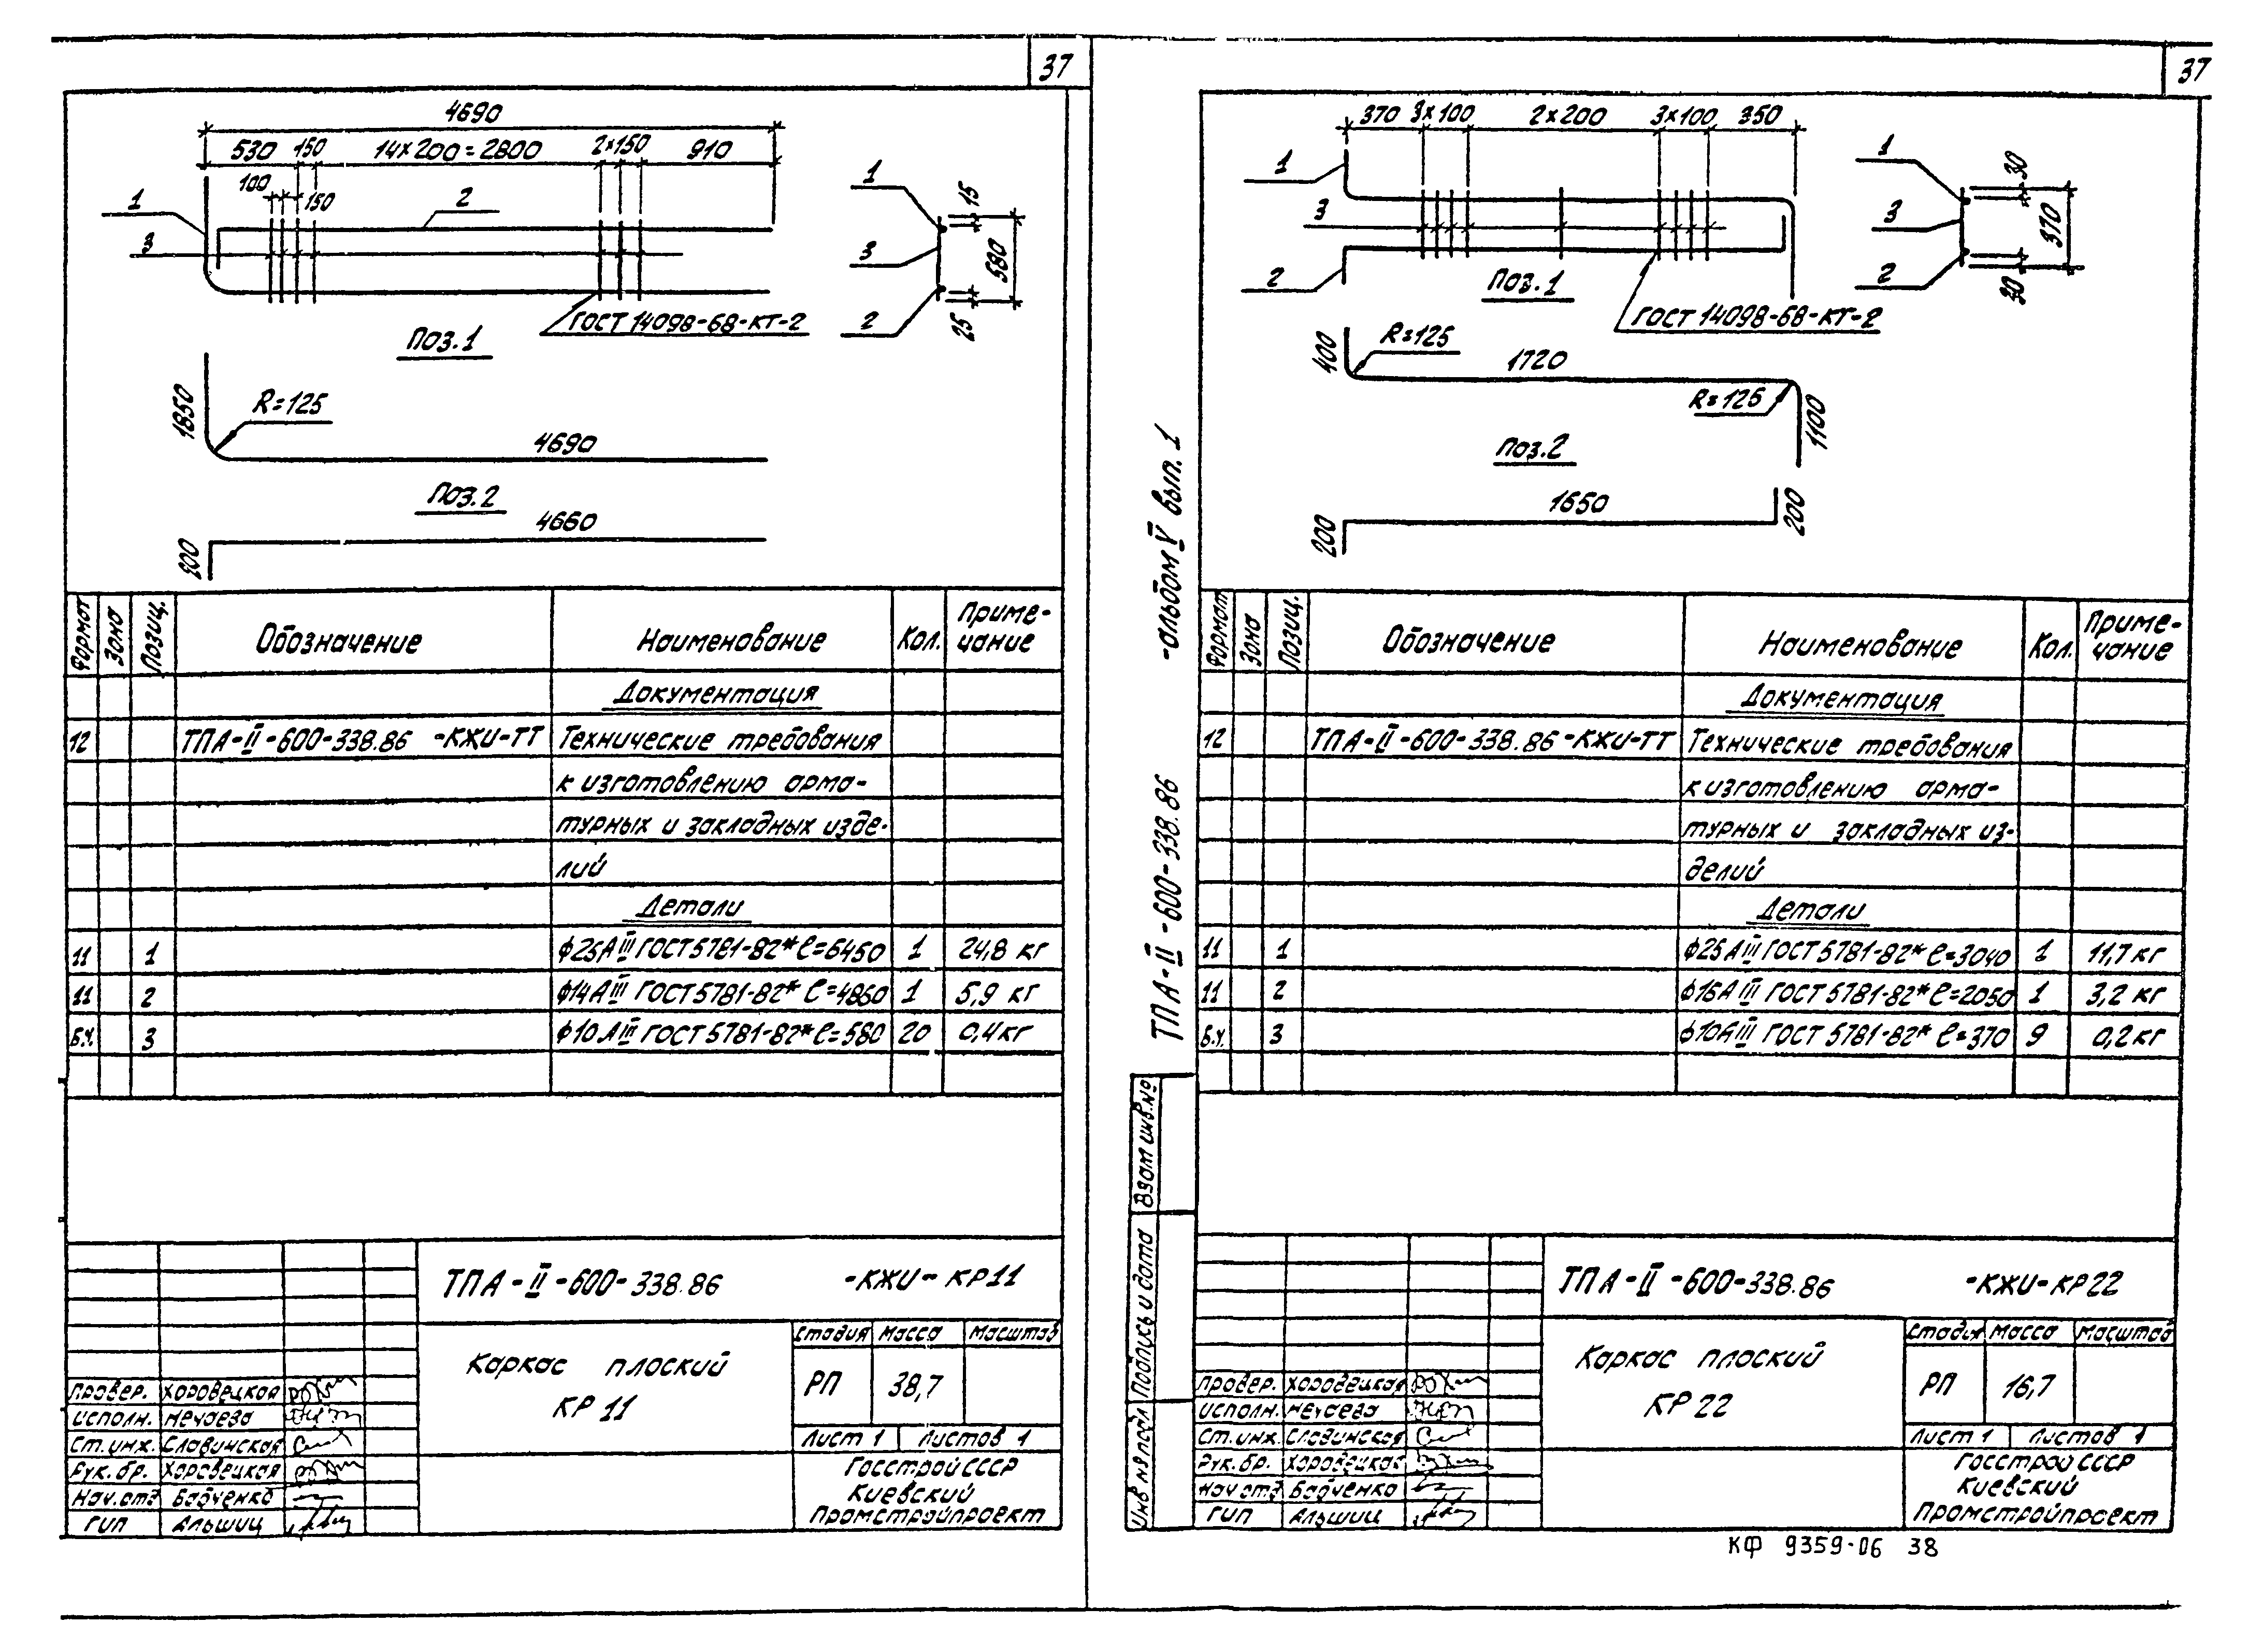 37
4690
530 150 14×200=2800 2×150 910
100
150
1
2
3
1
3
2
15
580
25
ГОСТ 14098-68-КТ-2
Поз.1
1850
R=125
4690
Поз.2
4660
200
Формат Зона Позиц. Обозначение Наименование Кол. Приме-
чание
Документация
12 ТПА-II-600-338.86 -КЖИ-ТТ Технические требования
к изготовлению арма-
турных и закладных изде-
лий
Детали
11 1 ф25АIII ГОСТ 5781-82* ℓ=6450 1 24,8 кг
11 2 ф14АIII ГОСТ 5781-82* ℓ=4860 1 5,9 кг
Б.Ч. 3 ф10АIII ГОСТ 5781-82* ℓ=580 20 0,4кг
ТПА-II-600-338.86 -КЖИ- КР11
Каркас плоский
КР 11
Стадия Масса Масштаб
РП 38,7
Лист 1 Листов 1
Госстрой СССР
Киевский
Промстройпроект
Провер. Хоровецкая
Исполн. Нечаева
Ст.инж. Славинская
Рук.бр. Хоровецкая
Нач.отд Бабченко
ГИП Альшиц
37
370 3×100 2×200 3×100 350
1
3
2
1
3
2
30
370
30
Поз.1
ГОСТ 14098-68-КТ-2
400
R=125
1720
R=125
1100
Поз.2
1650
200
200
ТПА-II-600-338.86 -альбом V вып. 1
Формат Зона Позиц. Обозначение Наименование Кол. Приме-
чание
Документация
12 ТПА-II-600-338.86-КЖИ-ТТ Технические требования
к изготовлению арма-
турных и закладных из-
делий
Детали
11 1 ф25АIII ГОСТ 5781-82* ℓ=3040 1 11,7кг
11 2 ф16АIII ГОСТ 5781-82* ℓ=2050 1 3,2 кг
Б.Ч. 3 ф10АIII ГОСТ 5781-82* ℓ=370 9 0,2кг
Взам инв.№
Подпись и дата
Инв № подл
ТПА-II-600-338.86 -КЖИ-КР22
Каркас плоский
КР 22
Стадия Масса Масштаб
РП 16,7
Лист 1 Листов 1
Госстрой СССР
Киевский
Промстройпроект
Провер. Хоровецкая
Исполн. Нечаева
Ст.инж. Славинская
Рук.бр. Хоровецкая
Нач отд Бабченко
ГИП Альшиц
КФ 9359-06 38